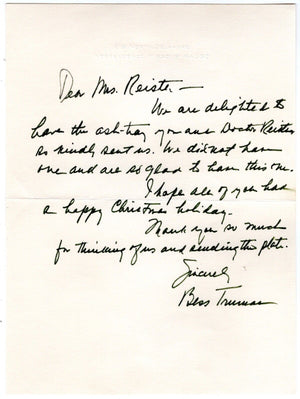 Dear Mrs. Reister —
We are delighted to
have the ash-tray you and Doctor Reister
so kindly sent us. We did not have
one and are so glad to have this one.
I hope all of you had
a happy Christmas holiday.
Thank you so much
for thinking of us and sending the gift.
Sincerely
Bess Truman